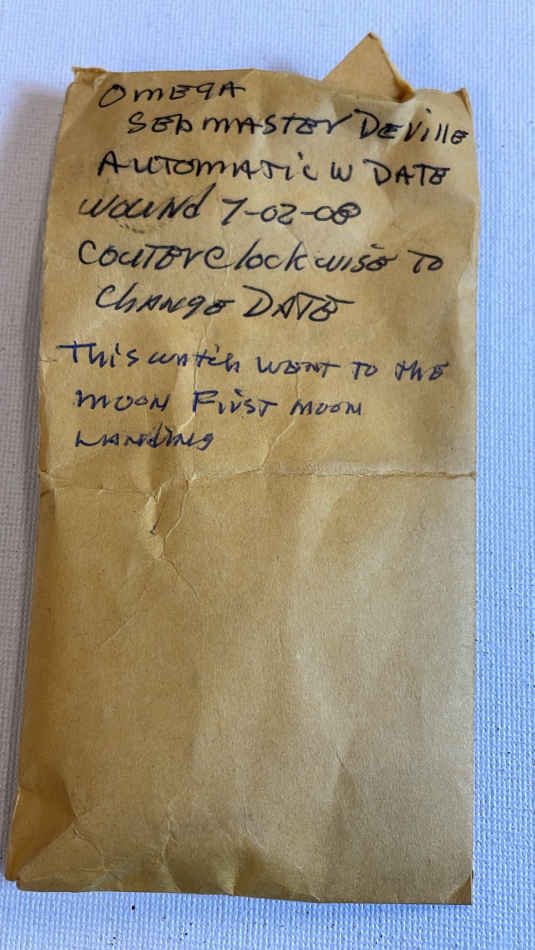 OMEGA
SEAMASTER DEVILLE
AUTOMATIC W DATE
WOUND 7-02-08
COUTERCLOCKWISE TO
CHANGE DATE
This watch WENT TO the
MOON FIRST MOON
LANDING